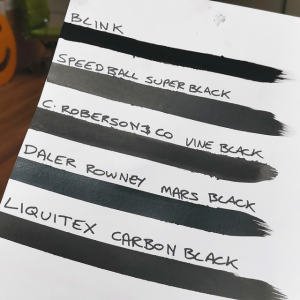 BLINK
SPEEDBALL SUPER BLACK
C. ROBERSON & CO VINE BLACK
DALER ROWNEY MARS BLACK
LIQUITEX CARBON BLACK